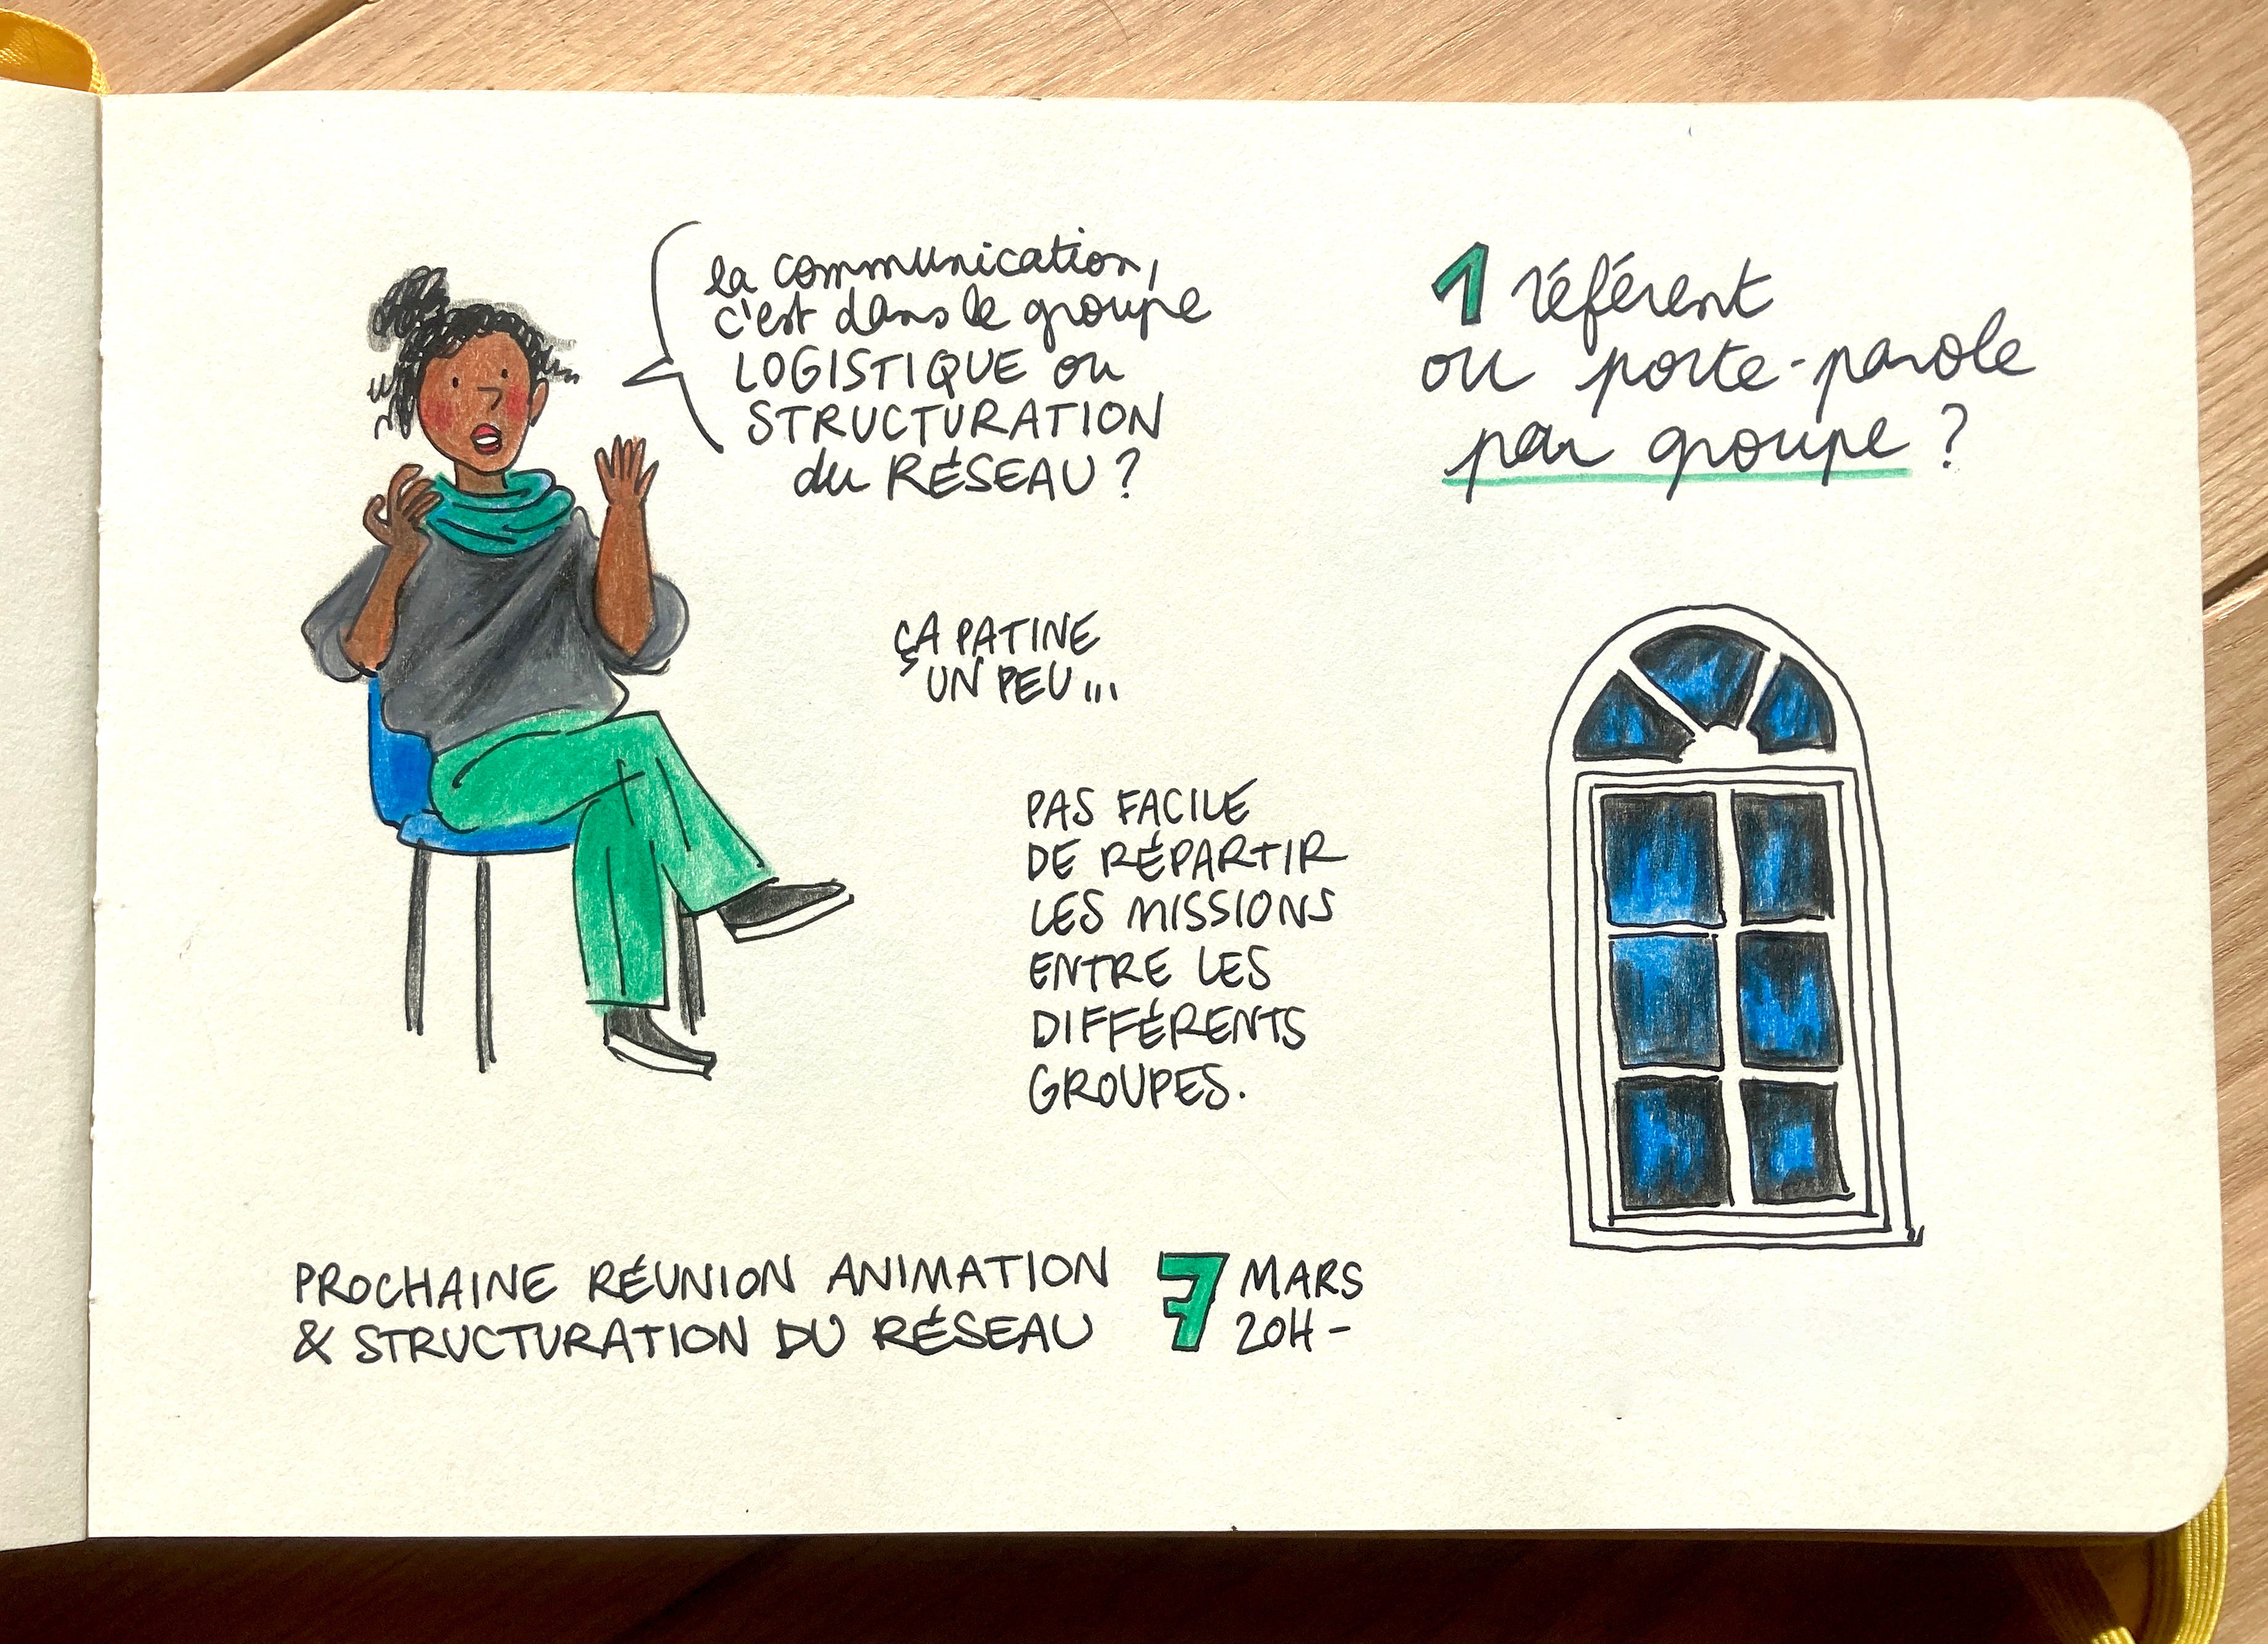 la communication,
c'est dans le groupe
LOGISTIQUE ou
STRUCTURATION
du RÉSEAU ?
1 référent
ou porte-parole
par groupe ?
ÇA PATINE
UN PEU ...
PAS FACILE
DE RÉPARTIR
LES MISSIONS
ENTRE LES
DIFFÉRENTS
GROUPES.
PROCHAINE RÉUNION ANIMATION
& STRUCTURATION DU RÉSEAU
7 MARS
20H -